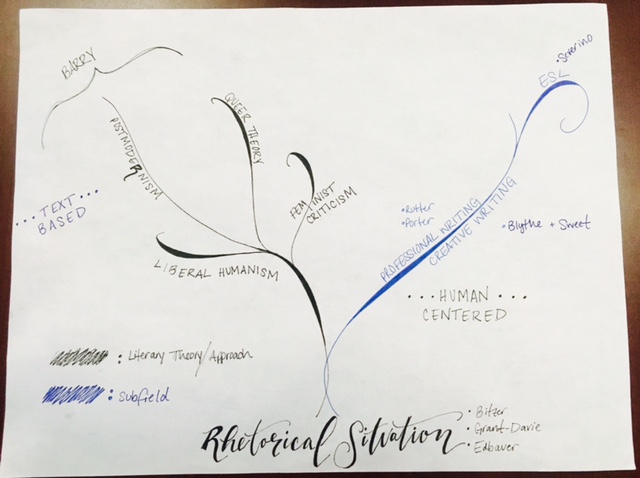 BARRY
• Severino
ESL
QUEER THEORY
POSTMODERNISM
FEMINIST
CRITICISM
• • • TEXT • • •
BASED
• Rutter
• Porter
PROFESSIONAL WRITING
CREATIVE WRITING
• Blythe + Sweet
LIBERAL HUMANISM
• • • HUMAN • • •
CENTERED
: Literary Theory/Approach
: Subfield
Rhetorical Situation
• Bitzer
• Grant-Davie
• Edbauer